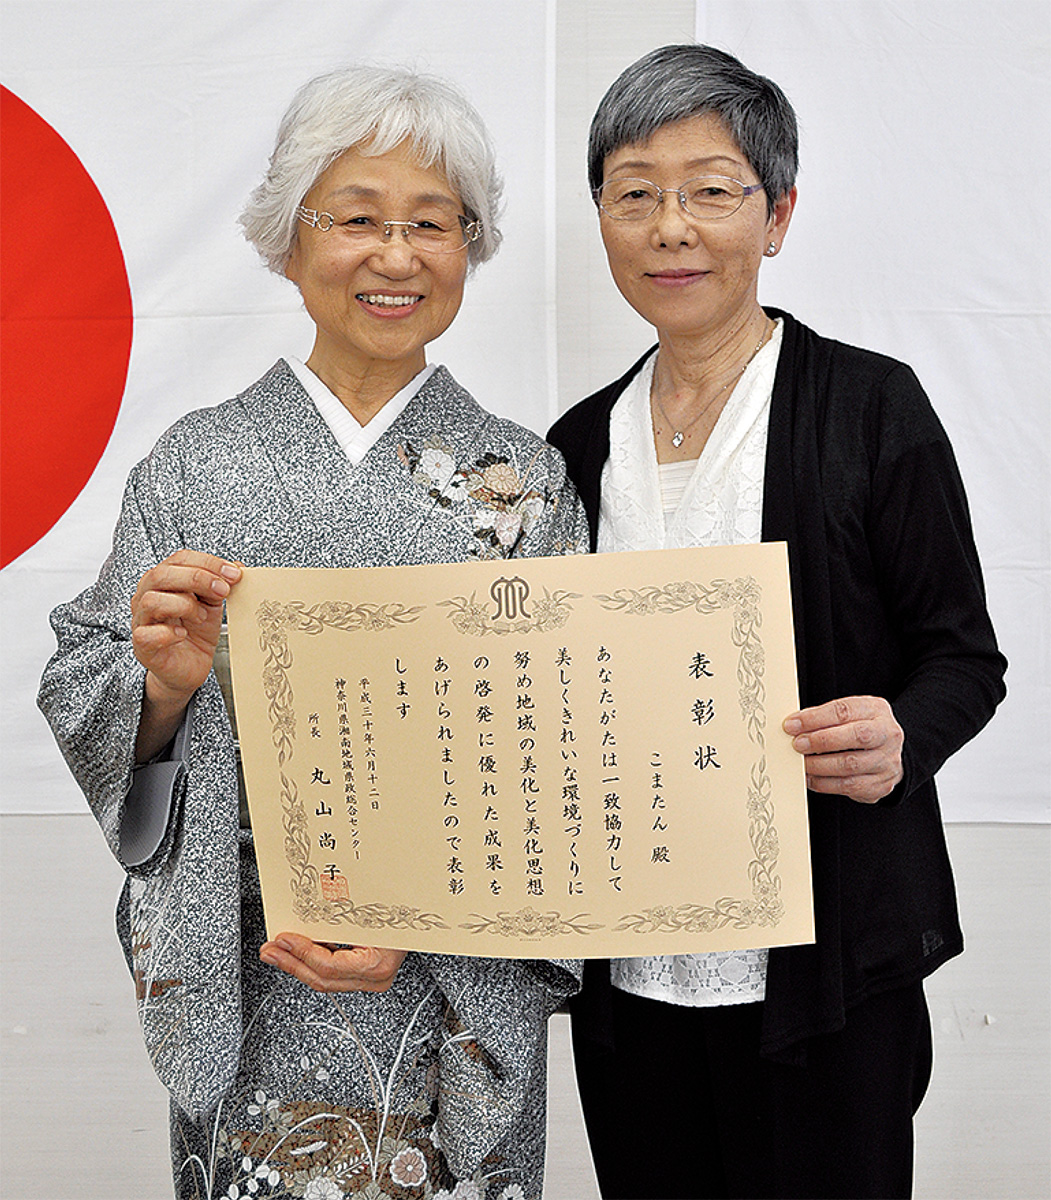 表彰状
こまたん殿
あなたがたは一致協力して
美しくきれいな環境づくりに
努め地域の美化と美化思想
の啓発に優れた成果を
あげられましたので表彰
します
平成三十年六月十二日
神奈川県湘南地域県政総合センター
所長 丸山尚子